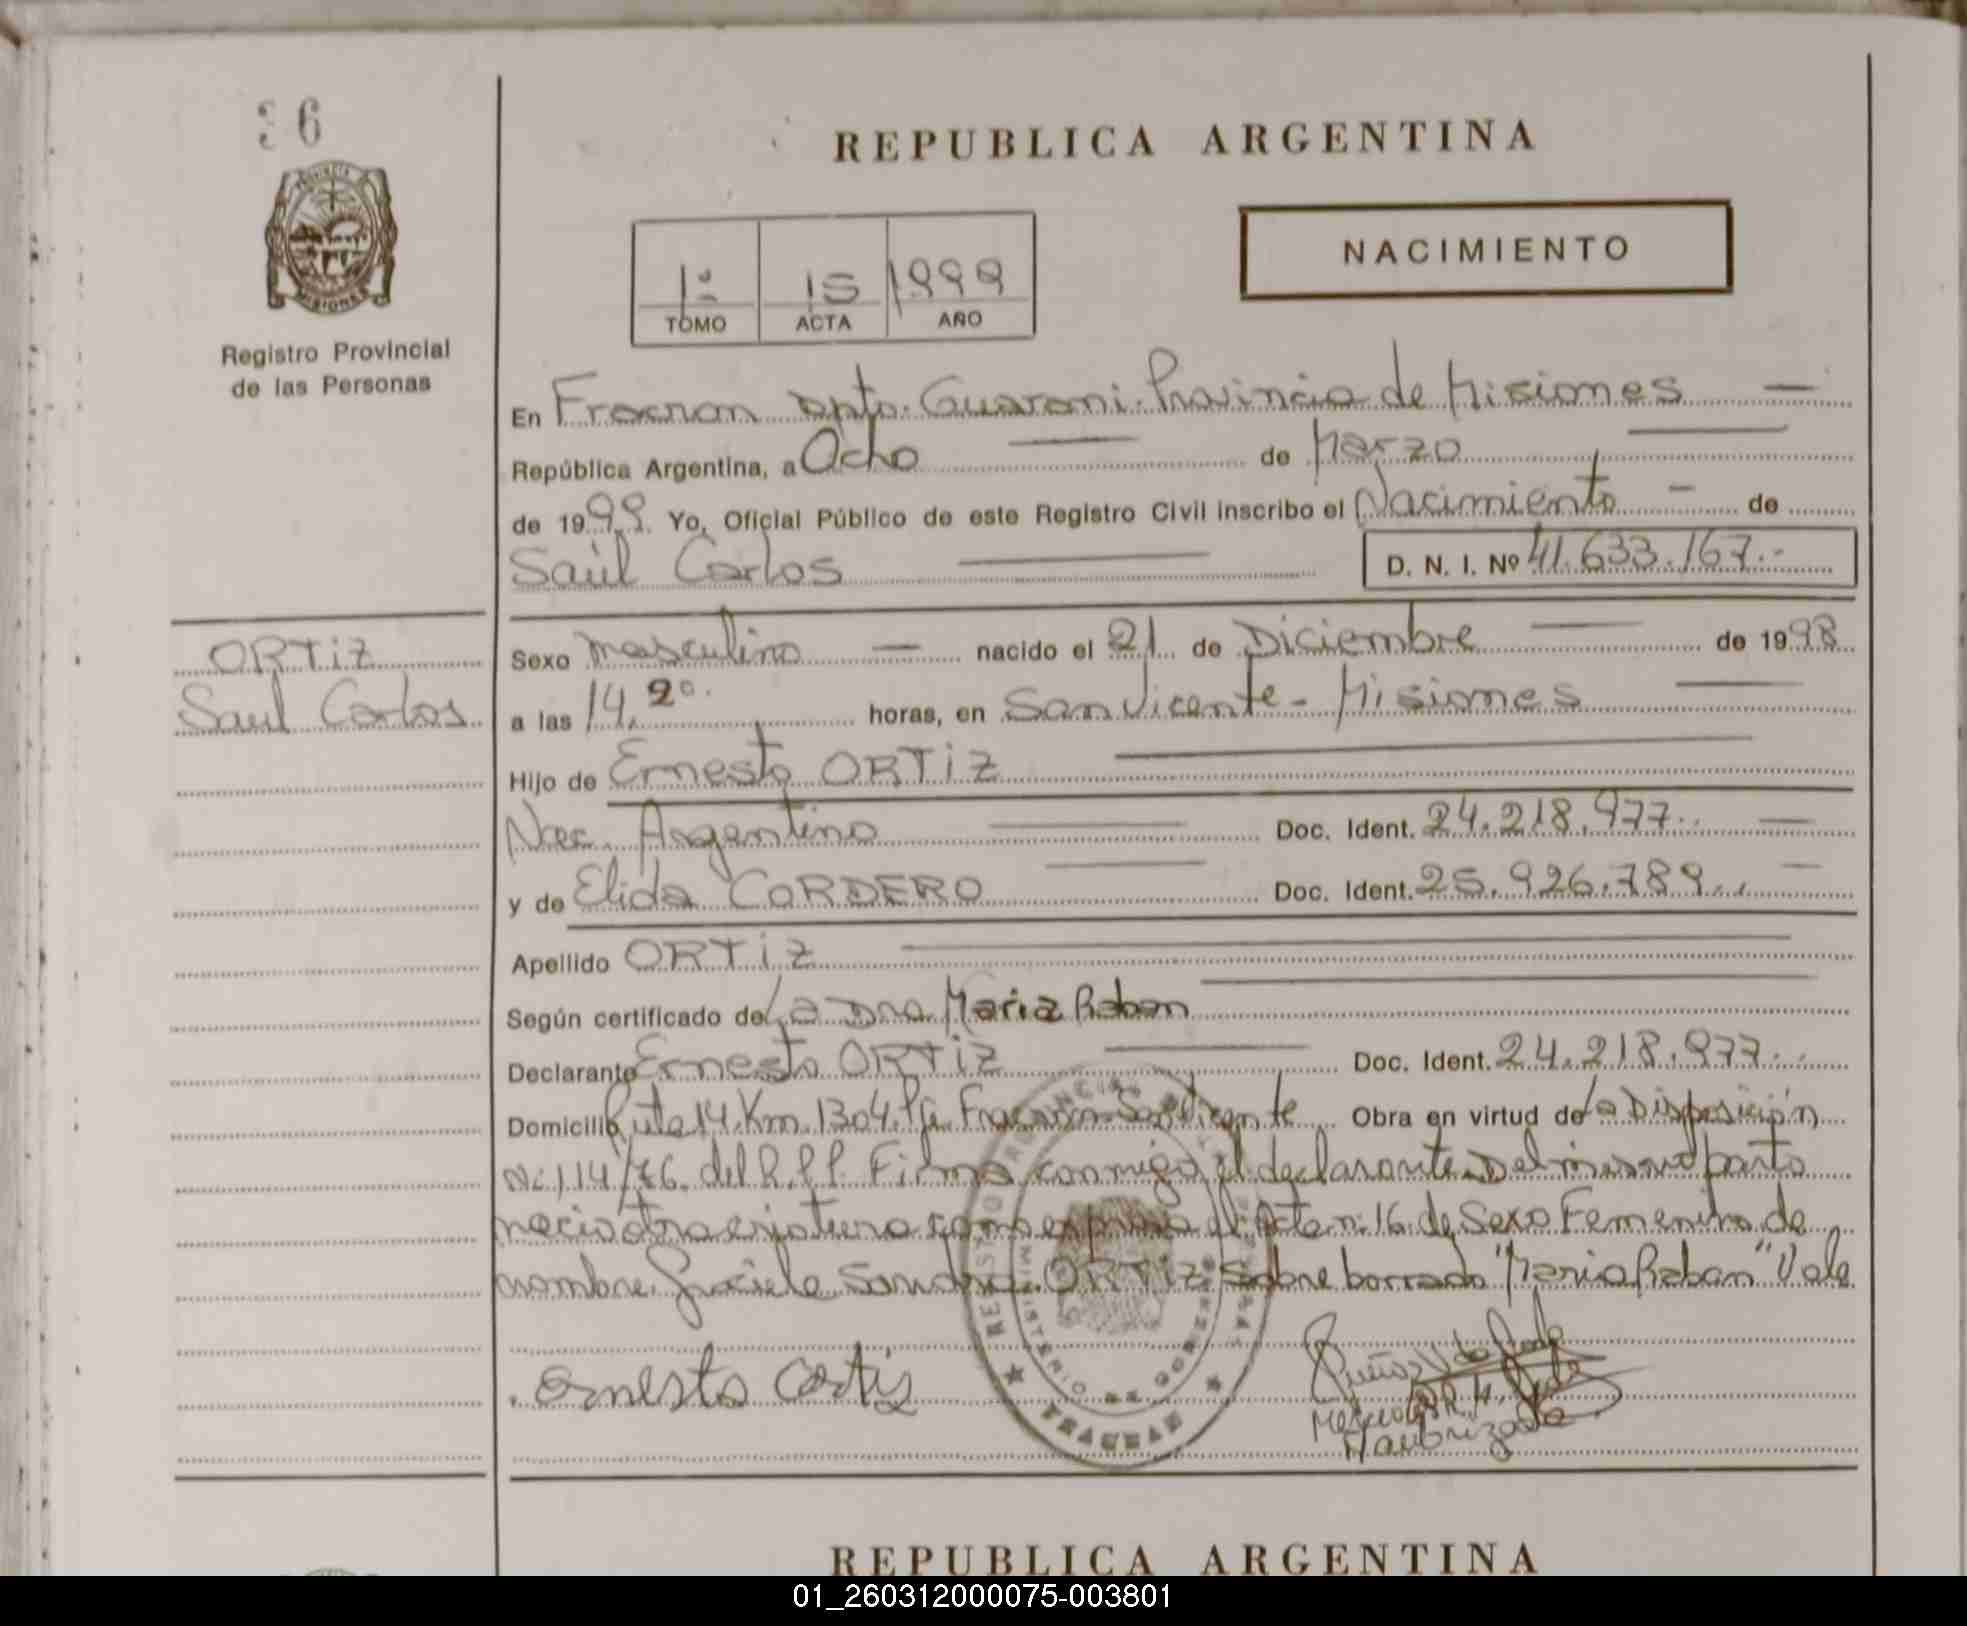 36
REPUBLICA ARGENTINA
NACIMIENTO
1º 15 1999
TOMO ACTA AÑO
PROVINCIA
MISIONES
Registro Provincial
de las Personas
En Fracran Dpto. Guarani. Provincia de Misiones
República Argentina, a Ocho de Marzo
de 1999. Yo, Oficial Público de este Registro Civil inscribo el Nacimiento - de
Saúl Carlos D. N. I. Nº 41.633.167.-
ORTiZ
Saul Carlos
Sexo masculino — nacido el 21 de Diciembre de 1998
a las 14.20. horas, en San Vicente - Misiones
Hijo de Ernesto ORTiZ
Nac. Argentino Doc. Ident. 24.218.977.
y de Elida CORDERO Doc. Ident. 25.926.789.
Apellido ORTiZ
Según certificado de La Dra Maria Raban
Declarante Ernesto ORTiZ Doc. Ident. 24.218.977.
Domicilio Ruta 14 Km. 1304 Fracran-San Vicente Obra en virtud de La Disposición
Nº 114/76. del R.P.P. Firma conmigo el declarante. Del mismo parto
nacio otra criatura como expresa el Acta nº 16 de Sexo Femenino de
nombre Graciela Sandra ORTiZ sobre borrado "Maria Raban" Vale
Ernesto Ortiz
REGISTRO PROVINCIAL
MINISTERIO DE GOBIERNO
FRACRAN
REPUBLICA ARGENTINA
01_260312000075-003801